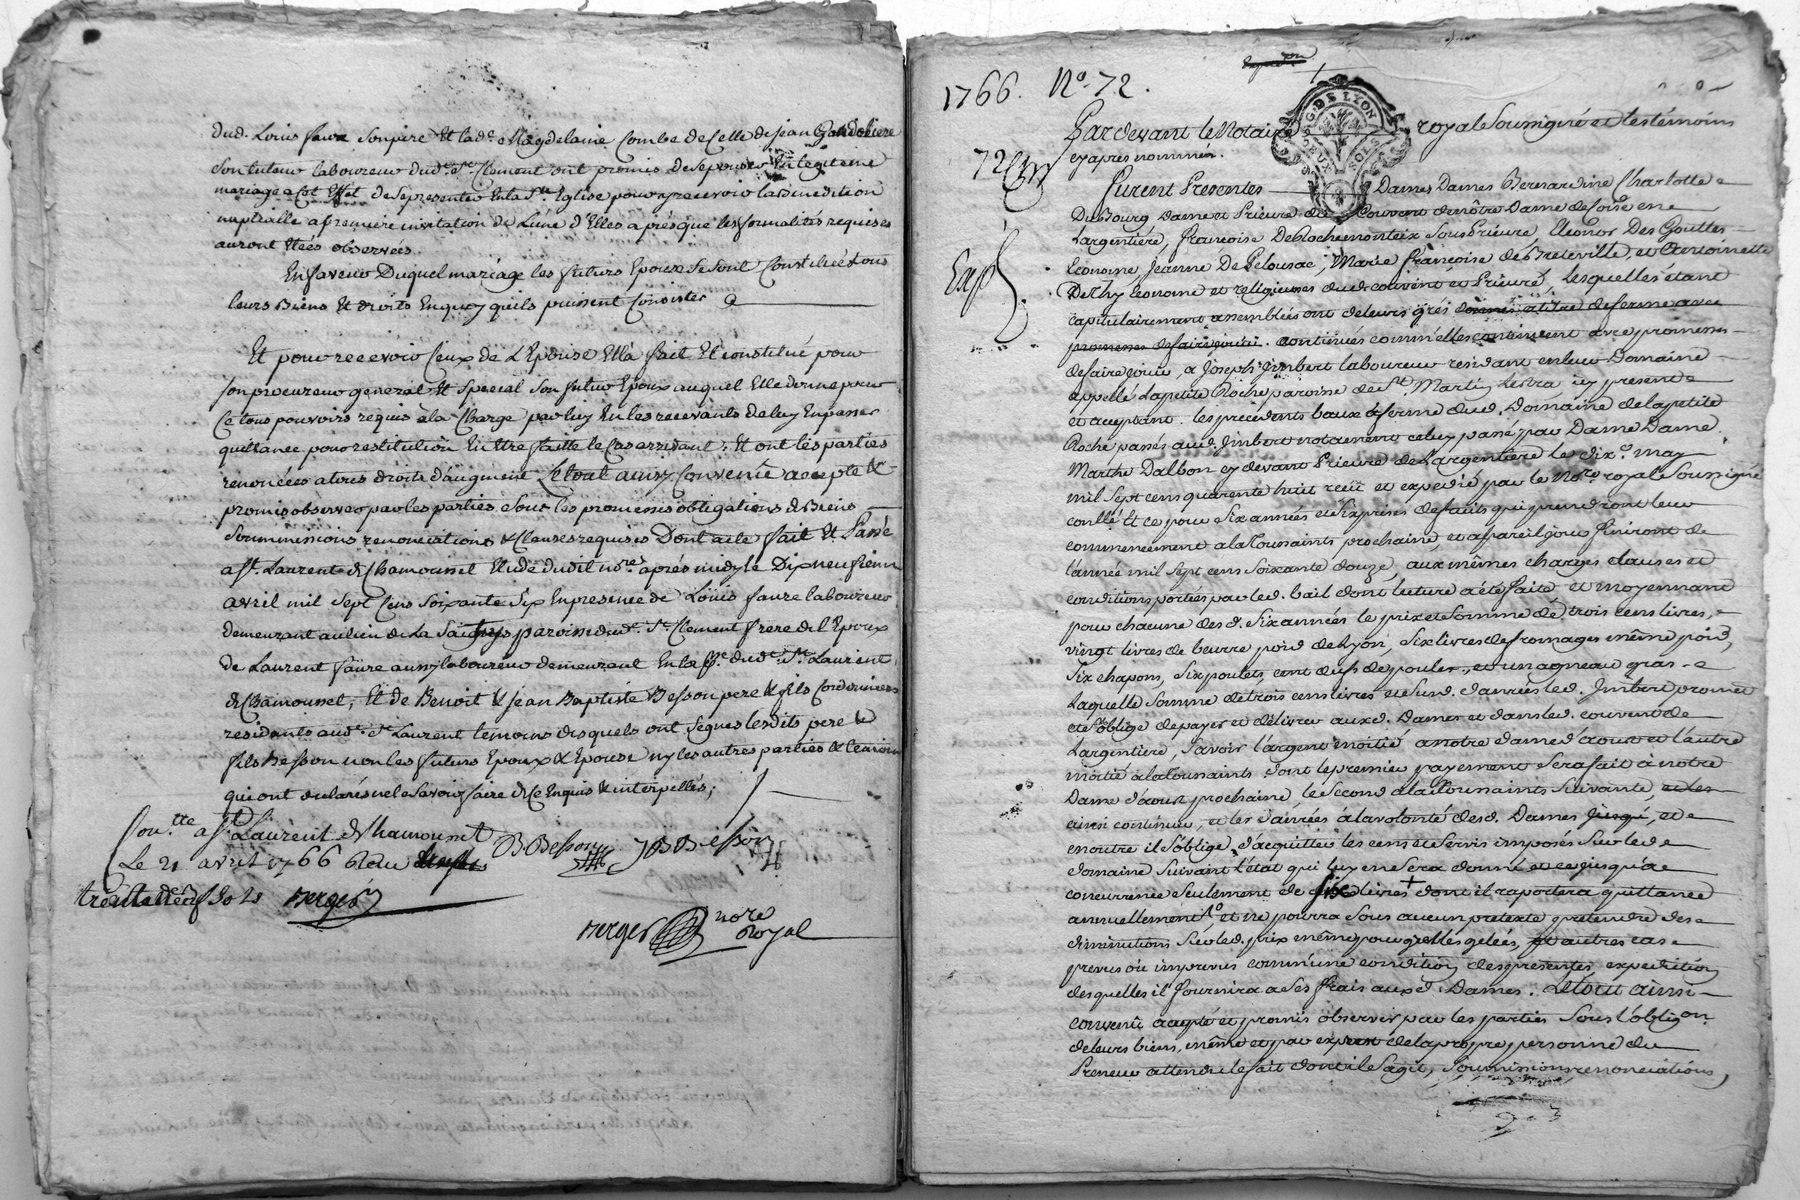 dud. Louis faure son pere Et lad.e Magdelaine Combe de Celle de jean Gandoliere
son tuteur laboureur dud.t St Clement ont promis de sepouser En legitime
mariage a cet Effet de se presenter En la Ste Eglise pour y recevoir la benediction
nuptialle a premiere invitation de Lune d'Elles aprés que les formalités requises
auront Etées observées.
En faveur Duquel mariage les futurs Epoux se sont Constitué tous
leurs Biens Et droits En quoy quils puissent Consister
Et pour recevoir Ceux de L'Epouse Ella fait Et constitué pour
son procureur general Et special son futur Epoux auquel Elle donne pour
Ce tous pouvoirs requis a la Charge par luy En les recevants de luy En passer
quittance pour restitution En Etre faitte le Cas arrivant; Et ont les parties
renoncées a tous droits d'augment Le tout ainsy Convenû accepté &
promis observer par les parties sous les promesses obligations de Biens
Soummissions renonciations & Clauses requises Dont acte fait Et Passé
a St. Laurent de Chamousset Etude dudit no.re aprés midy le Dix neufieme
avril mil sept Cens soixante six En presence de Loüis faure laboureur
demeurant au lieu de La Saignes paroisse dud.t St Clement frere de l'Epoux
de Laurent faure aussy laboureur demeurant En la p.sse dud.t St. Laurent
de Chamousset, Et de Benoit & jean Baptiste Besson pere & fils Cordonniers
residants aud.t St Laurent temoins desquels ont signes lesdits pere &
fils Besson non les futurs Epoux & Epouse ny les autres parties & temoins
qui ont declarés ne le Savoir faire de Ce Enquis & interpellés;
Con.tte a St Laurent de Chamousset
Le 21 avril 1766 Reçu
trente neuf sols Berger
B Besson JB Besson
Berger no.re Royal
1766. No. 72.
Pardevant le Notaire royal Soussigné et les témoins
cy après nommés.
72
Furent Presentes Dames Dames Bernardine Charlotte
DuBourg Dame et Prieure du Couvent de nôtre Dame de
Largentiére, françoise De Rochemonteix Sous Prieure, Eléonor Des Gouttes
Econome, Jeanne De Pelousac, Marie françoise de Bréteville, et Antoinette
De Thy Econome et religieuses dud. couvent et Prieuré, lesquelles étant
Exp.
capitulairement assemblées ont de leurs grés donnés a titre de ferme avec
promesses de faire jouir. continués comm'elles continuent avec promesses
de faire jouir, a Joseph Imbert laboureur residant en leur Domaine
appellé La petite Roche paroisse de St. Martin Lestra icy present
et acceptant. les précédents baux a ferme dud. Domaine de la petite
Roche passés aud. Imbert notament celuy passé par Dame Dame
Marthe Dalbon cy devant Prieure de Largentiere le dix.e may
mil Sept cens quarente huit recü et expedié par le No.re royal Soussigné
conllé Et ce pour Six années et Six prises de fruits qui prendront leur
commencement a la Toussaints prochaine, et a pareil jour finiront de
l'année mil Sept cens Soixante douze, aux mêmes charges clauses et
conditions portées par led. bail dont lecture a été faitte et moyennant
pour chacune desd. Six années le prix et Somme de trois cens livres,
vingt livres de beurre poid de Lyon, Six livres de fromages même poid,
Six chapons, Six poulets, cent oeufs de poules, et un agneau gras
Laquelle Somme de trois cens livres et Susd. danrées led. Imbert promet
et s'oblige de payer et délivrer auxd. Dames et dans led. couvent de
Largentiere, Savoir l'argent moitié a notre Dame d'aoust et l'autre
moitié à la Toussaints dont le premier payement Sera fait à notre
Dame d'aoust prochaine, le Second a la Toussaints Suivante,
ainsi continuer, et les danrées à la volonté desd. Dames jusqu', et
en outre il s'oblige d'acquitter les cens et Servis imposés Sur led.
domaine Suivant l'état qui luy en Sera donné et ce jusqu'a
concurrence Seulement de six livres + dont il raportera quittance
annuellement et ne pourra Sous aucun pretexte pretendre des
diminutions Sur led. prix même pour grelles gélées, et autres cas
prevus ou imprevus comm'une condition des presentes expedition
desquelles il fournira a Ses frais auxd. Dames. Le tout ainsi
convenû accepté et promis observer par les parties Sous l'oblig.on
de leurs biens, même et par exprest de la propre personne du
Preneur attendu le fait dont il S'agit, Soummissions renonciations,